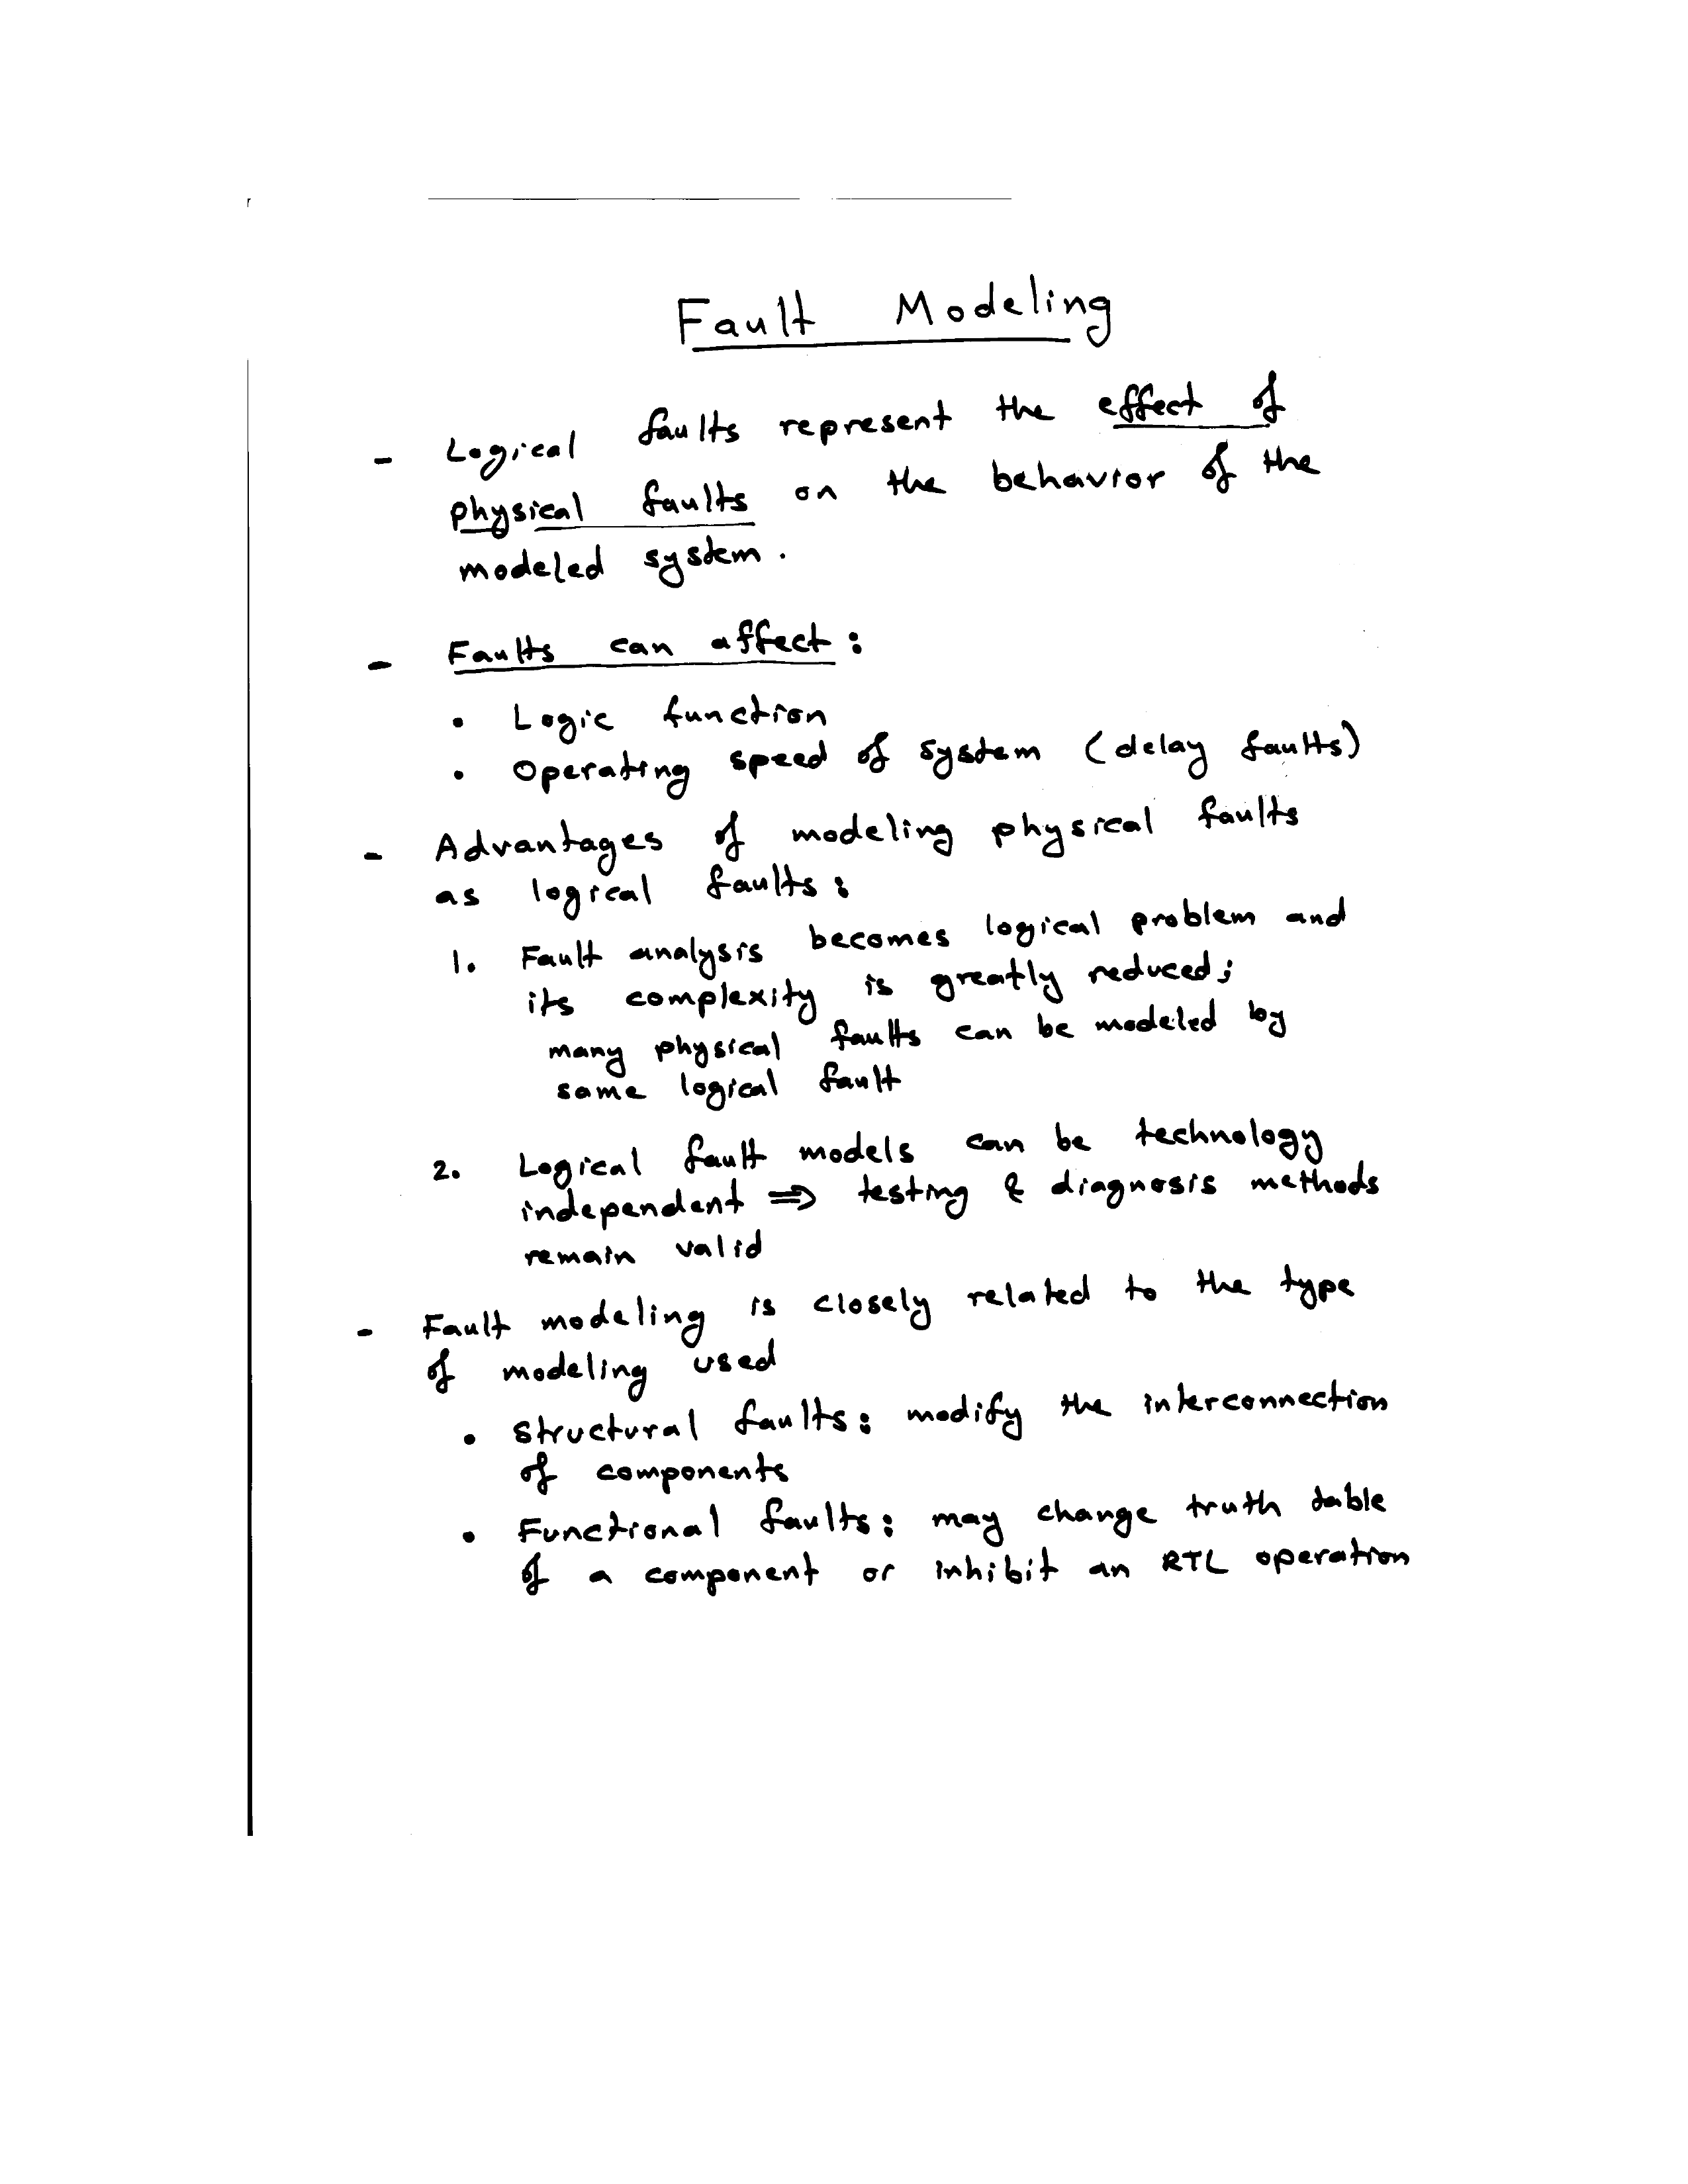 Fault Modeling
- Logical faults represent the effect of
physical faults on the behavior of the
modeled system.
- Faults can affect:
• Logic function
• Operating speed of system (delay faults)
- Advantages of modeling physical faults
as logical faults:
1. Fault analysis becomes logical problem and
its complexity is greatly reduced;
many physical faults can be modeled by
same logical fault
2. Logical fault models can be technology
independent ⇒ testing & diagnosis methods
remain valid
- Fault modeling is closely related to the type
of modeling used
• Structural faults: modify the interconnection
of components
• Functional faults: may change truth table
of a component or inhibit an RTL operation